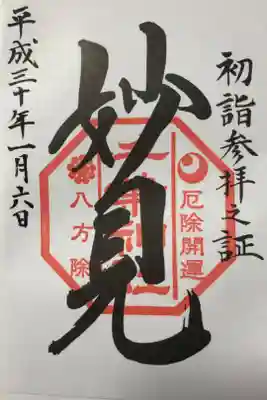 初詣参拝之証
厄除開運
妙見
八方除
平成三十年一月六日